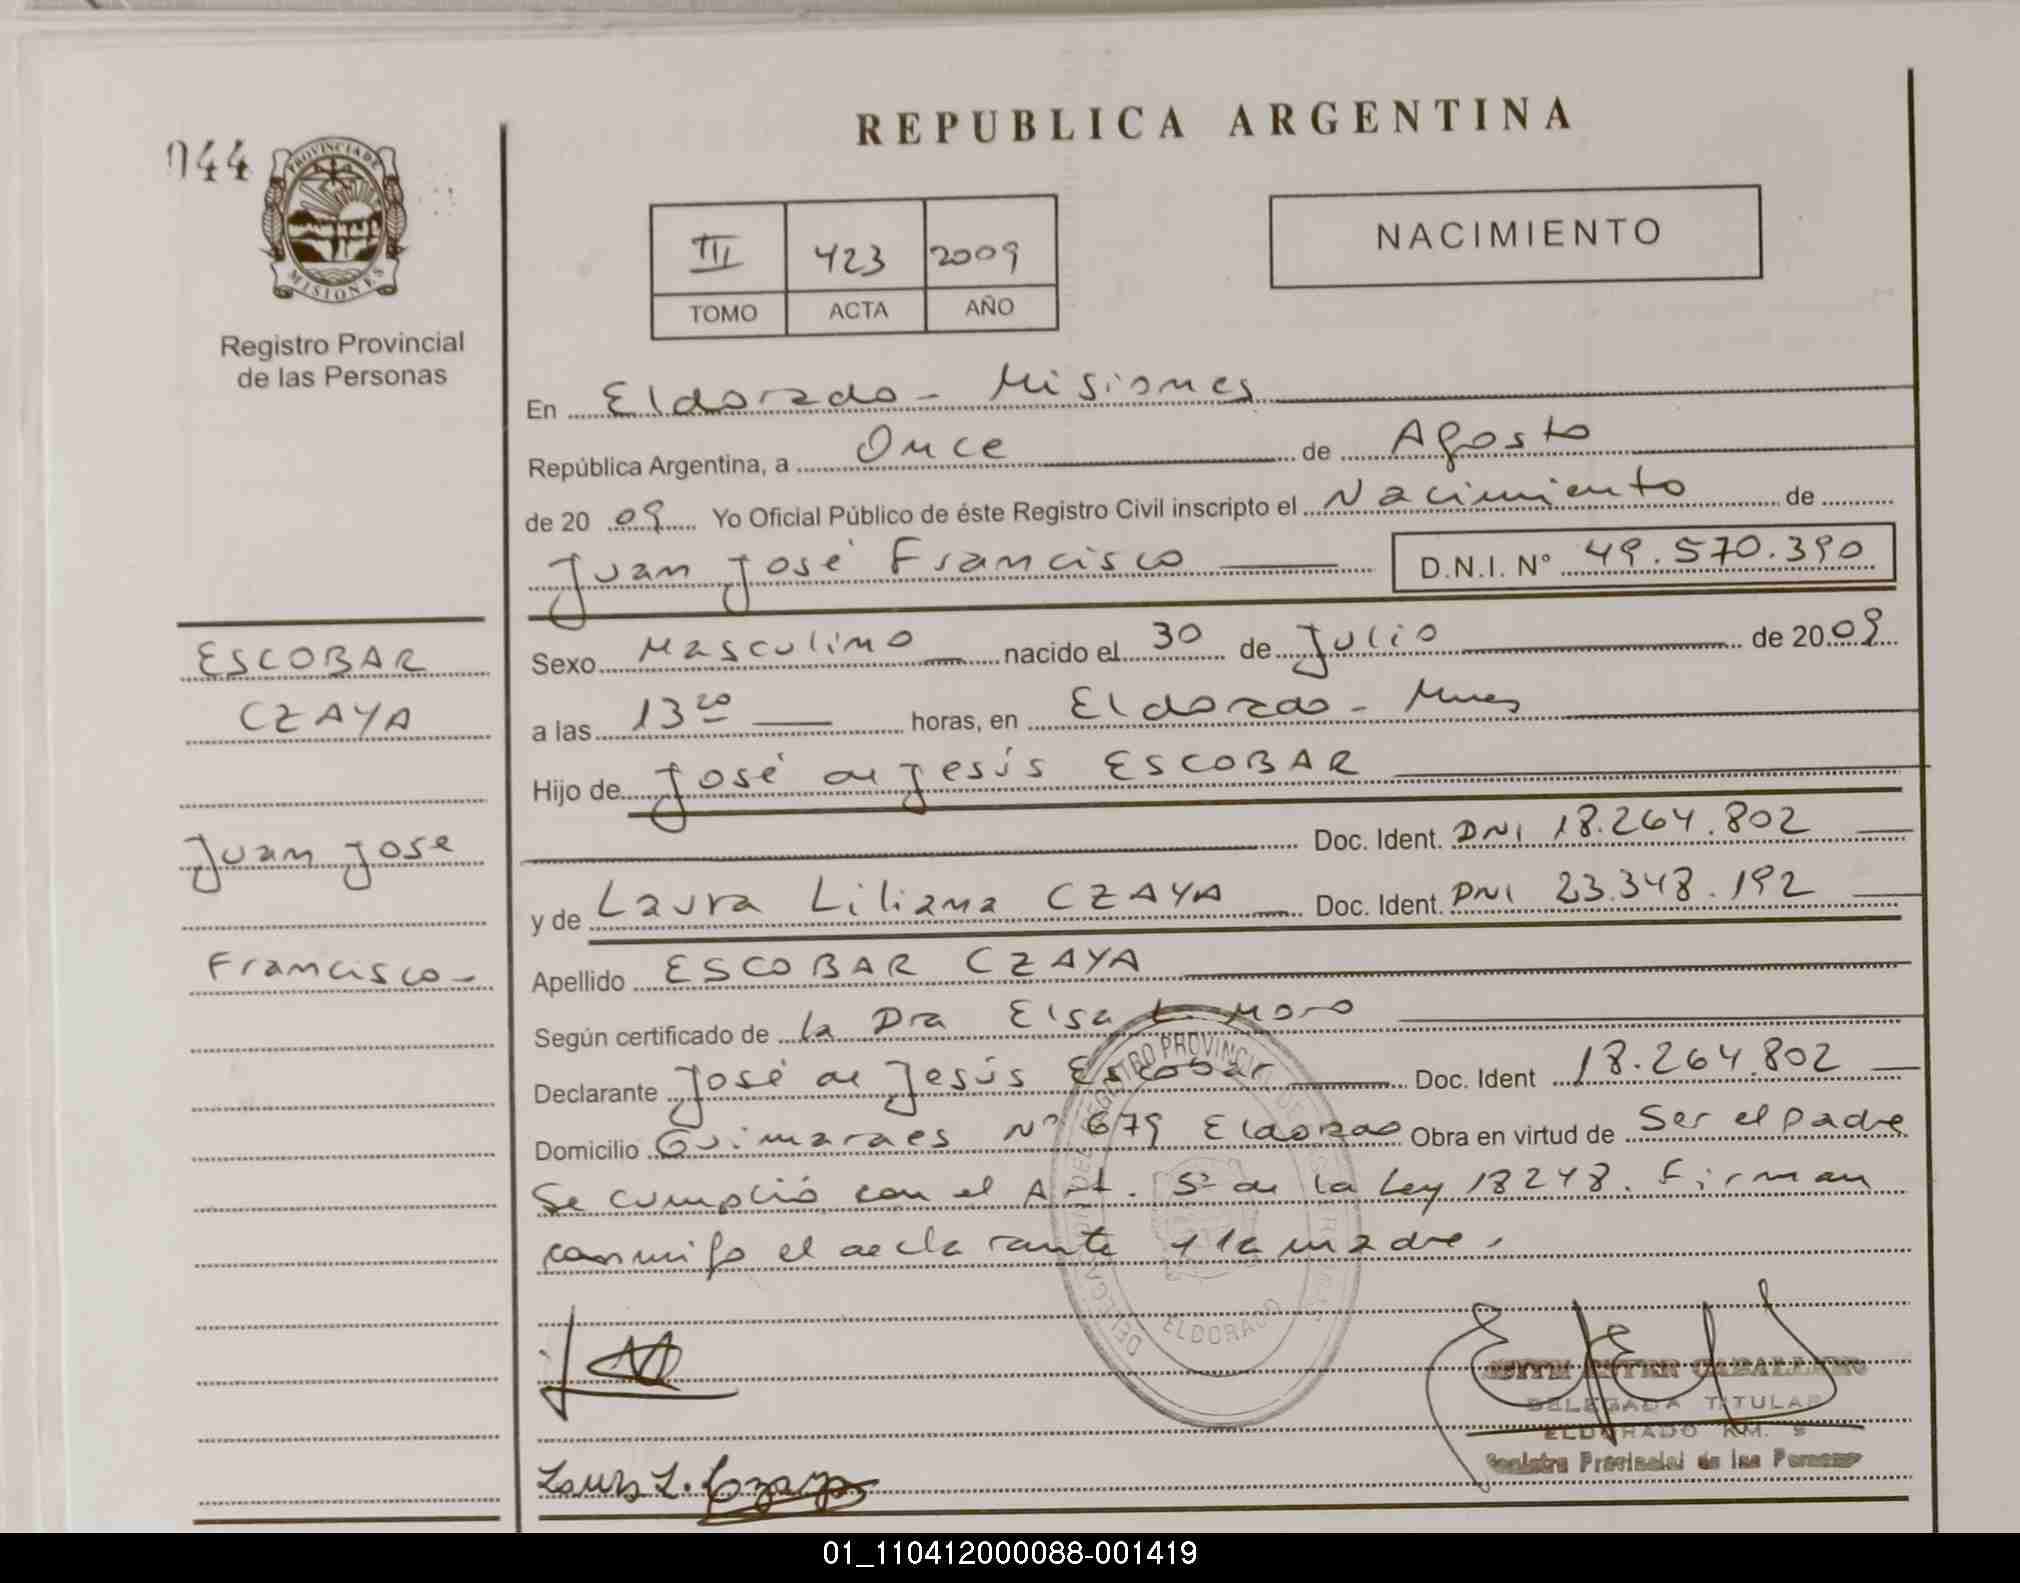 REPUBLICA ARGENTINA
044
PROVINCIA DE
MISIONES
Registro Provincial
de las Personas
III 423 2009
TOMO ACTA AÑO
NACIMIENTO
En Eldorado - Misiones
República Argentina, a Once de Agosto
de 20 09 Yo Oficial Público de éste Registro Civil inscripto el Nacimiento de
Juan José Francisco D.N.I. Nº 49.570.390
ESCOBAR
CZAYA
Juan Jose
Francisco-
Sexo Masculino nacido el 30 de Julio de 2009
a las 13 20 horas, en Eldorado - Mnes
Hijo de José de Jesús ESCOBAR
Doc. Ident. DNI 18.264.802
y de Laura Liliana CZAYA Doc. Ident. DNI 23.348.192
Apellido ESCOBAR CZAYA
Según certificado de la Dra Elsa L. Moro
Declarante José de Jesús Escobar Doc. Ident 18.264.802
Domicilio Guimaraes Nº 679 Eldorado Obra en virtud de Ser el padre
Se cumplió con el Art. 5º de la Ley 18248. Firman
conmigo el declarante y la madre.
REGISTRO PROVINCIAL DE LAS PERSONAS
ELDORADO
ESTER CABALLERO
DELEGADA TITULAR
ELDORADO KM. 9
Registro Provincial de las Personas
L. Czaya
01_110412000088-001419